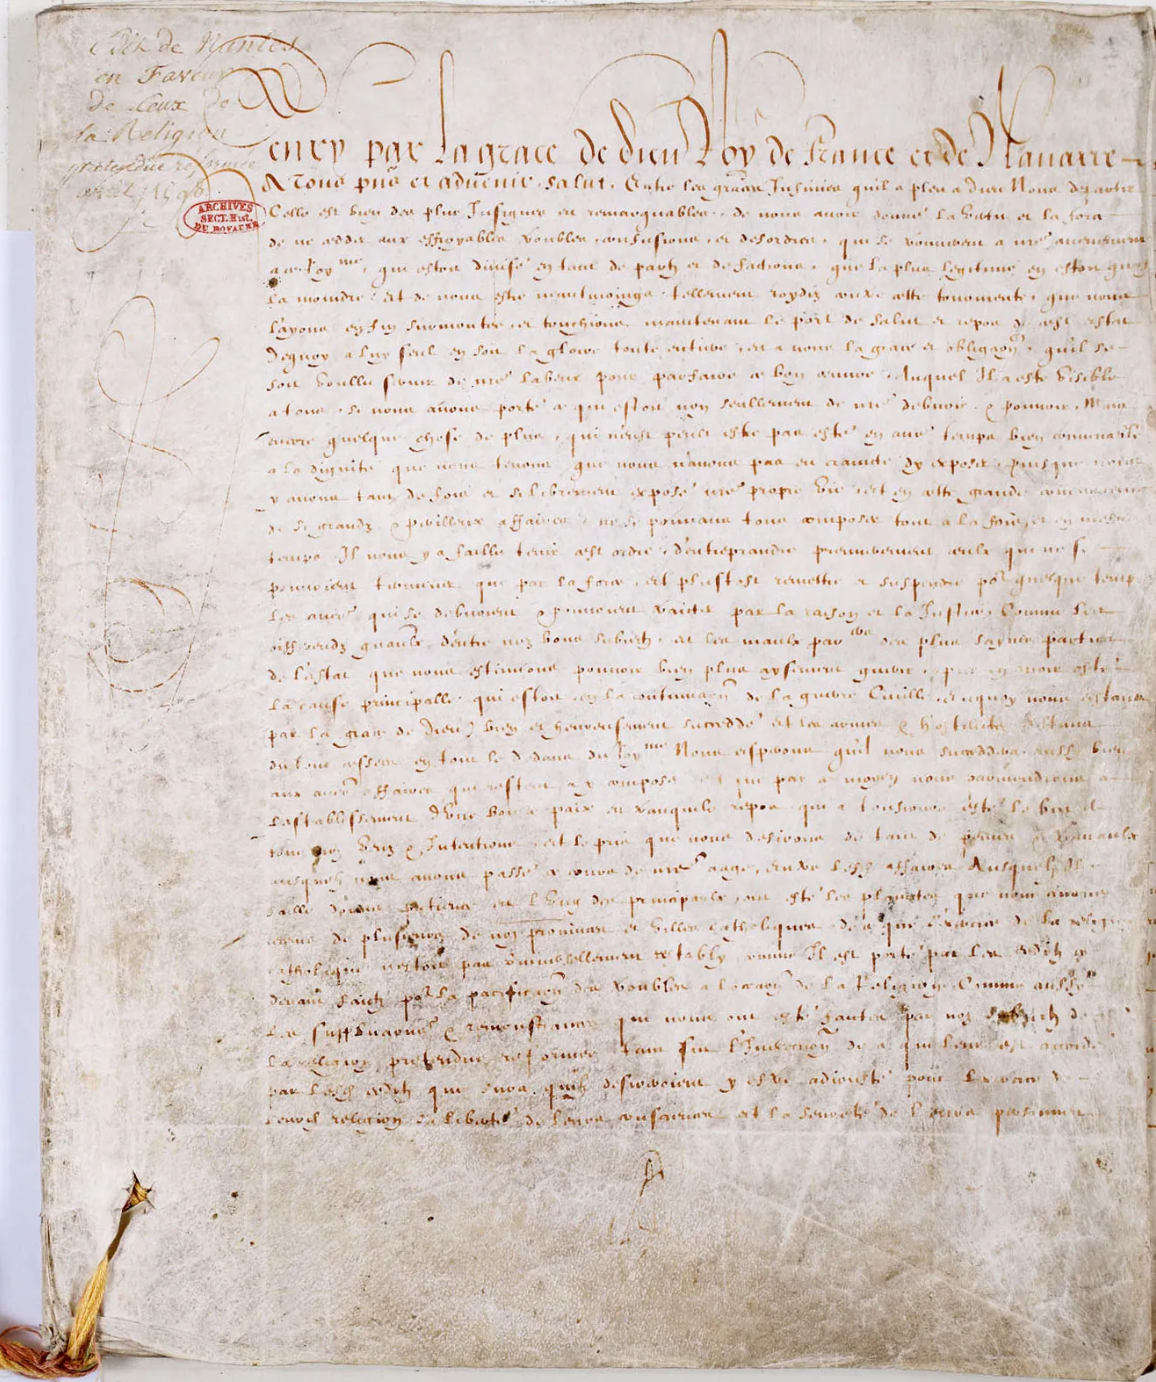 Edit de Nantes
en Faveur
De Ceux de
la Religion
pretendue reformée
avril 1598
Henry par La grace de dieu Roy de France et de Nauarre
A Tous pns et aduenir salut. Entre les graces Infinies quil a pleu a dieu Nous departir
ARCHIVES
SECT. Hist.
DU ROYAUME
Celle est bien des plus Insignes et remarquables, de nous auoir donné la vertu et la force
de ne cedder aux effroyables troubles, confusions, et desordres, qui se trouuerent a nre aduenement
a ce Royme, qui estoit diuisé en tant de partz et de factions, que la plus legitime en estoit quasi
la moindre, Et de nous estre neantmoings tellement roydiz contre ceste tourmente, que nous
l'ayons enfin surmontee, et touchions maintenant le port de salut et repos de cest estat
Dequoy a luy seul en soit la gloire toute entiere, et a nous la grace et obligaon, qu'il se
soit voullu seruir de nre labeur pour parfaire ce bon oeuure, Auquel Il a esté visible
a tous, si nous auons porté ce qui estoit non seullement de nre debuoir, & pouuoir, Mais
encore quelque chose de plus, qui n'eust peult estre pas esté en autre temps bien conuenable
a la dignité que nous tenons, que nous n'auons pas eu craincte d'y exposer, puisque nous
y auons tant de fois et si librement exposé nre propre vie, Et en ceste grande concurrence
de si grandz & perilleux affaires, ne se pouuans tous composer tout a la fois, et en mesme
temps Il nous y a faillu tenir cest ordre, d'entreprandre premierement ceulx qui ne se
pouuoient terminer que par la force, et plustost remettre et suspendre pour quelque temps
Les autres qui se debuoient & pouuoient traicter par la raison et la Justice, Comme les
differendz generaulx d'entre noz bons subiectz, et les maulx par ers des plus saynes parties
de l'estat que nous estimions pouuoir bien plus aysement guerir, apres en auoir osté
La cause principalle, qui estoit en la continuaon de la guerre Ciuille, Et nous estans
par la grace de Dieu) bien et heureusement succeddé et les armes & hostillitez estans
du tout cessees en tout le dedans du Royme Nous esperons qu'il nous succeddera aussy bien
aux autres affaires qui restent a y composer, Et que par ce moyen nous paruiendrons a
L'establissement d'Une bonne paix et tranquile repos qui a tousiours esté le but de
tous noz veuz & Intentions, et le prix que nous desirons de tant de peines & trauaulx
ausquelz nous auons passé ce cours de nre aage, Entre lesd affaires Ausquelz Il a
faillu donner patience et l'Un des principaulx, ont esté les plainctes, que nous auons
receues de plusieurs de noz prouinces et villes catholiques, de ce que l'exercice de la religion
catholique n'estoit pas vniuersellement restably, comme Il est porté par les edictz cy
deuant faictz pour la pacificaon des troubles a l'occaon de la Religion, Comme aussy
Les supplicaons & remonstrances qui nous ont esté faictes par noz subiectz de
La religion pretendue reformee tant sur l'Inexecuon de ce qui leur est accordé
par lesd edictz que sur ce qu'ilz desireroient y estre adiousté pour l'exercice de
leurd religion, La liberté de leurs consciences et la seureté de leurs personnes